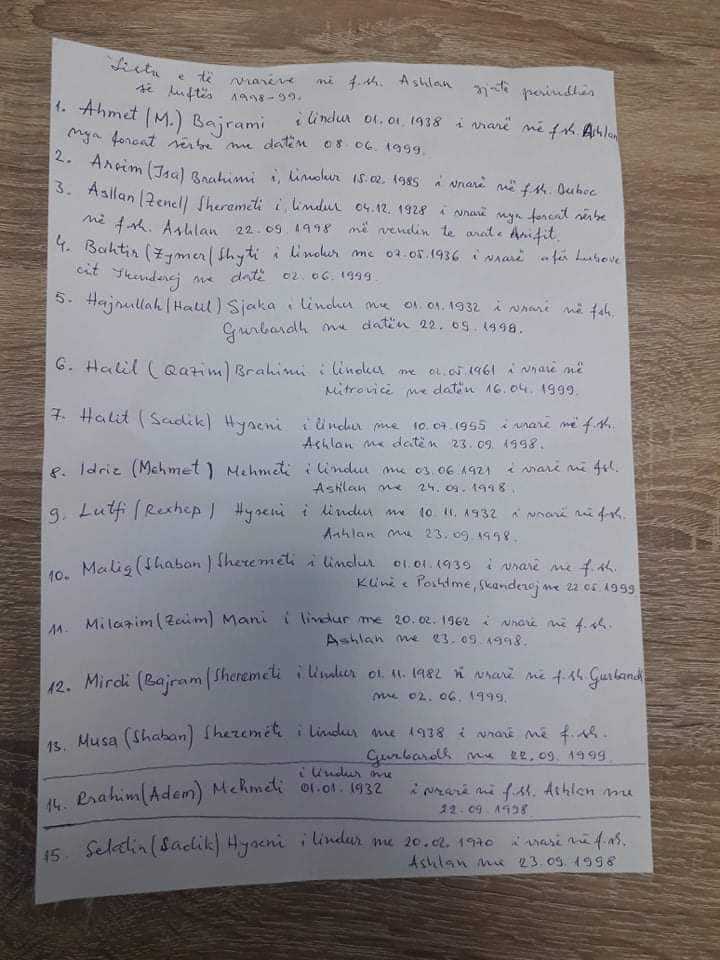 Lista e të vrarëve në f.sh. Ashlan gjatë periudhës
së luftës 1998-99.
1. Ahmet (M.) Bajrami i lindur 01.01.1938 i vrarë në f.sh. Ashlan
nga forcat serbe me datën 08.06.1999.
2. Arsim (Isa) Brahimi i, lindur 15.02.1985 i vrarë në f.sh. Duboc
3. Asllan (Zenel) Sheremeti i, lindur 04.12.1928 i vrarë nga forcat serbe
në f.sh. Ashlan 22.09.1998 në vendin te arat e Arifit.
4. Bahtir (Zymer) Shyti i lindur me 07.05.1936 i vrarë afër
cit Skenderaj me datë 02.06.1999.
5. Hajrullah (Halil) Sjaka i lindur me 01.01.1932 i vrarë në fsh.
Gurbardh me datën 22.09.1998.
6. Halil (Qazim) Brahimi i lindur me 02.05.1961 i vrarë në
Mitrovicë me datën 16.04.1999.
7. Halit (Sadik) Hyseni i lindur me 10.07.1955 i vrarë në f.sh.
Ashlan me datën 23.09.1998.
8. Idriz (Mehmet) Mehmeti i lindur me 03.06.1921 i vrarë në fsh.
Ashlan me 24.09.1998.
9. Lutfi (Rexhep) Hyseni i lindur me 10.11.1932 i vrarë në fsh.
Ashlan me 23.09.1998.
10. Maliq (Shaban) Sheremeti i lindur 01.01.1939 i vrarë në f.sh.
Klinë e Poshtme, Skenderaj me 22.05.1999
11. Milazim (Zaim) Mani i lindur me 20.02.1962 i vrarë në f.sh.
Ashlan me 23.09.1998.
12. Mirdi (Bajram) Sheremeti i lindur 01.11.1982 i vrarë në f.sh. Gurbardh
me 02.06.1999.
13. Musa (Shaban) Sheremeti i lindur me 1938 i vrarë në f.sh.
Gurbardh me 22.09.1999.
i lindur me
14. Rrahim (Adem) Mehmeti 01.01.1932 i vrarë në f.sh. Ashlan me
22.09.1998
15. Selatin (Sadik) Hyseni i lindur me 20.02.1970 i vrarë në f.sh.
Ashlan me 23.09.1998